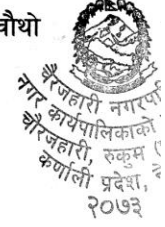 वौथो
चौरजहारी नगरपा
नगर कार्यपालिकाको
चौरजहारी, रुकुम (प
कर्णाली प्रदेश, ने
२०७३